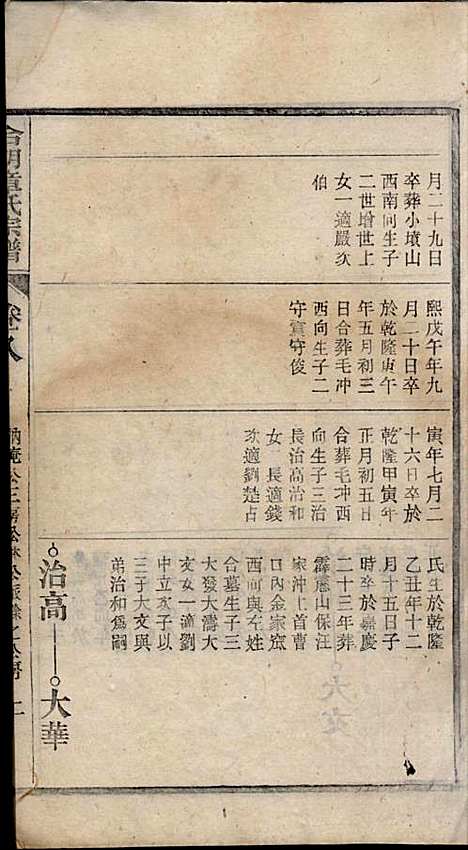 月二十九日
卒葬小墳山
西南向生子
二世增世上
女一適嚴次
伯
熙戊午年九
月二十日卒
於乾隆庚午
年五月初三
日合葬毛冲
西向生子二
守寬守俊
寅年七月二
十六日卒於
乾隆甲寅年
正月初五日
合葬毛冲西
向生子三治
長治高治和
女二長適錢
次適劉楚占
氏生於乾隆
乙丑年十二
月十五日子
時卒於嘉慶
二十三年葬
霹靂山保汪
家沖上首曹
口內金家窊
西向與左姓
合墓生子三
大發大濤大
文女一適劉
中立次子以
三子大文與
弟治和爲嗣
治高
大華
合明章氏宗譜
卷十八